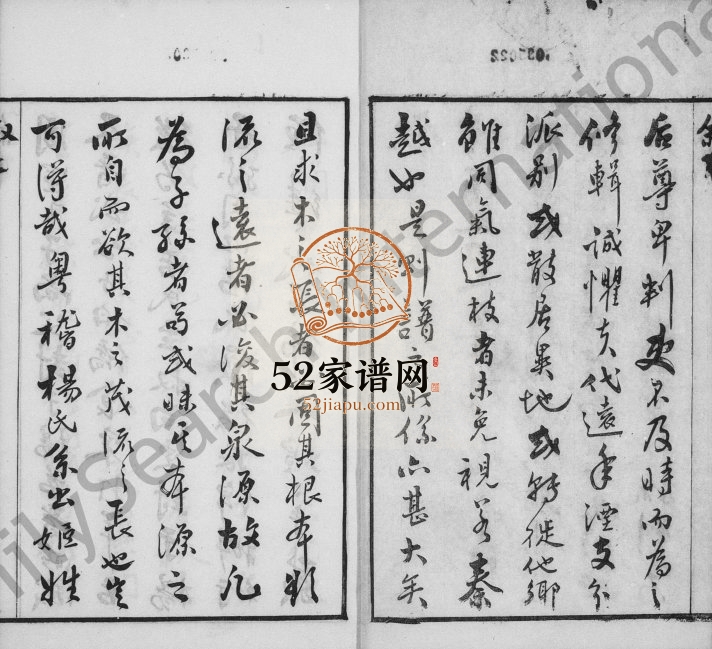 后尊卑判矣不及時而為之
修輯誠懼夫代遠年湮支分
派别或散居異地或轉徙他鄉
雖同氣連枝者未免視若秦
越也是則譜之所係亦甚大矣
且求木之長者固其根本欲
流之遠者必浚其泉源故凡
為子孫者苟或昧其本源之
所自而欲其木之茂流之長也豈
可得哉粵稽楊氏系出姬姓
52家谱网
52jiapu.com
FamilySearch International